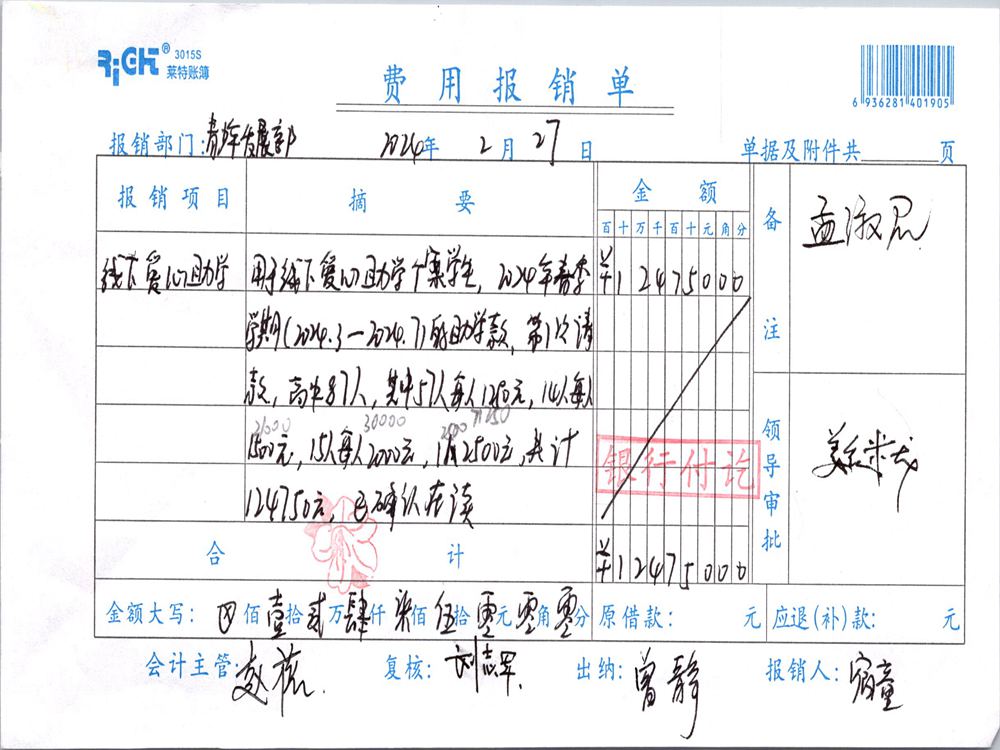 RiGHT® 3015S
莱特账簿
费用报销单
6 936281 401905
报销部门:青年发展部 2024年 2月 27日 单据及附件共 页
报销项目 摘要 金额 备注 孟淑思
百十万千百十元角分
线下爱心助学 用于线下爱心助学个案学生,2024年春季 ¥12475000
学期(2024.3—2024.7)的助学款,第1次请
款,高中87人,其中57人每人1250元,14人每人
21000 30000 2500 71250
1500元,15人每人2000元,1人2500元,共计
124750元,已确认在读
银行付讫
领导审批
合计 ¥12475000
金额大写: ⊗佰壹拾贰万肆仟柒佰伍拾零元零角零分 原借款: 元 应退(补)款: 元
会计主管: 复核:刘志军 出纳:曾静 报销人:宿童